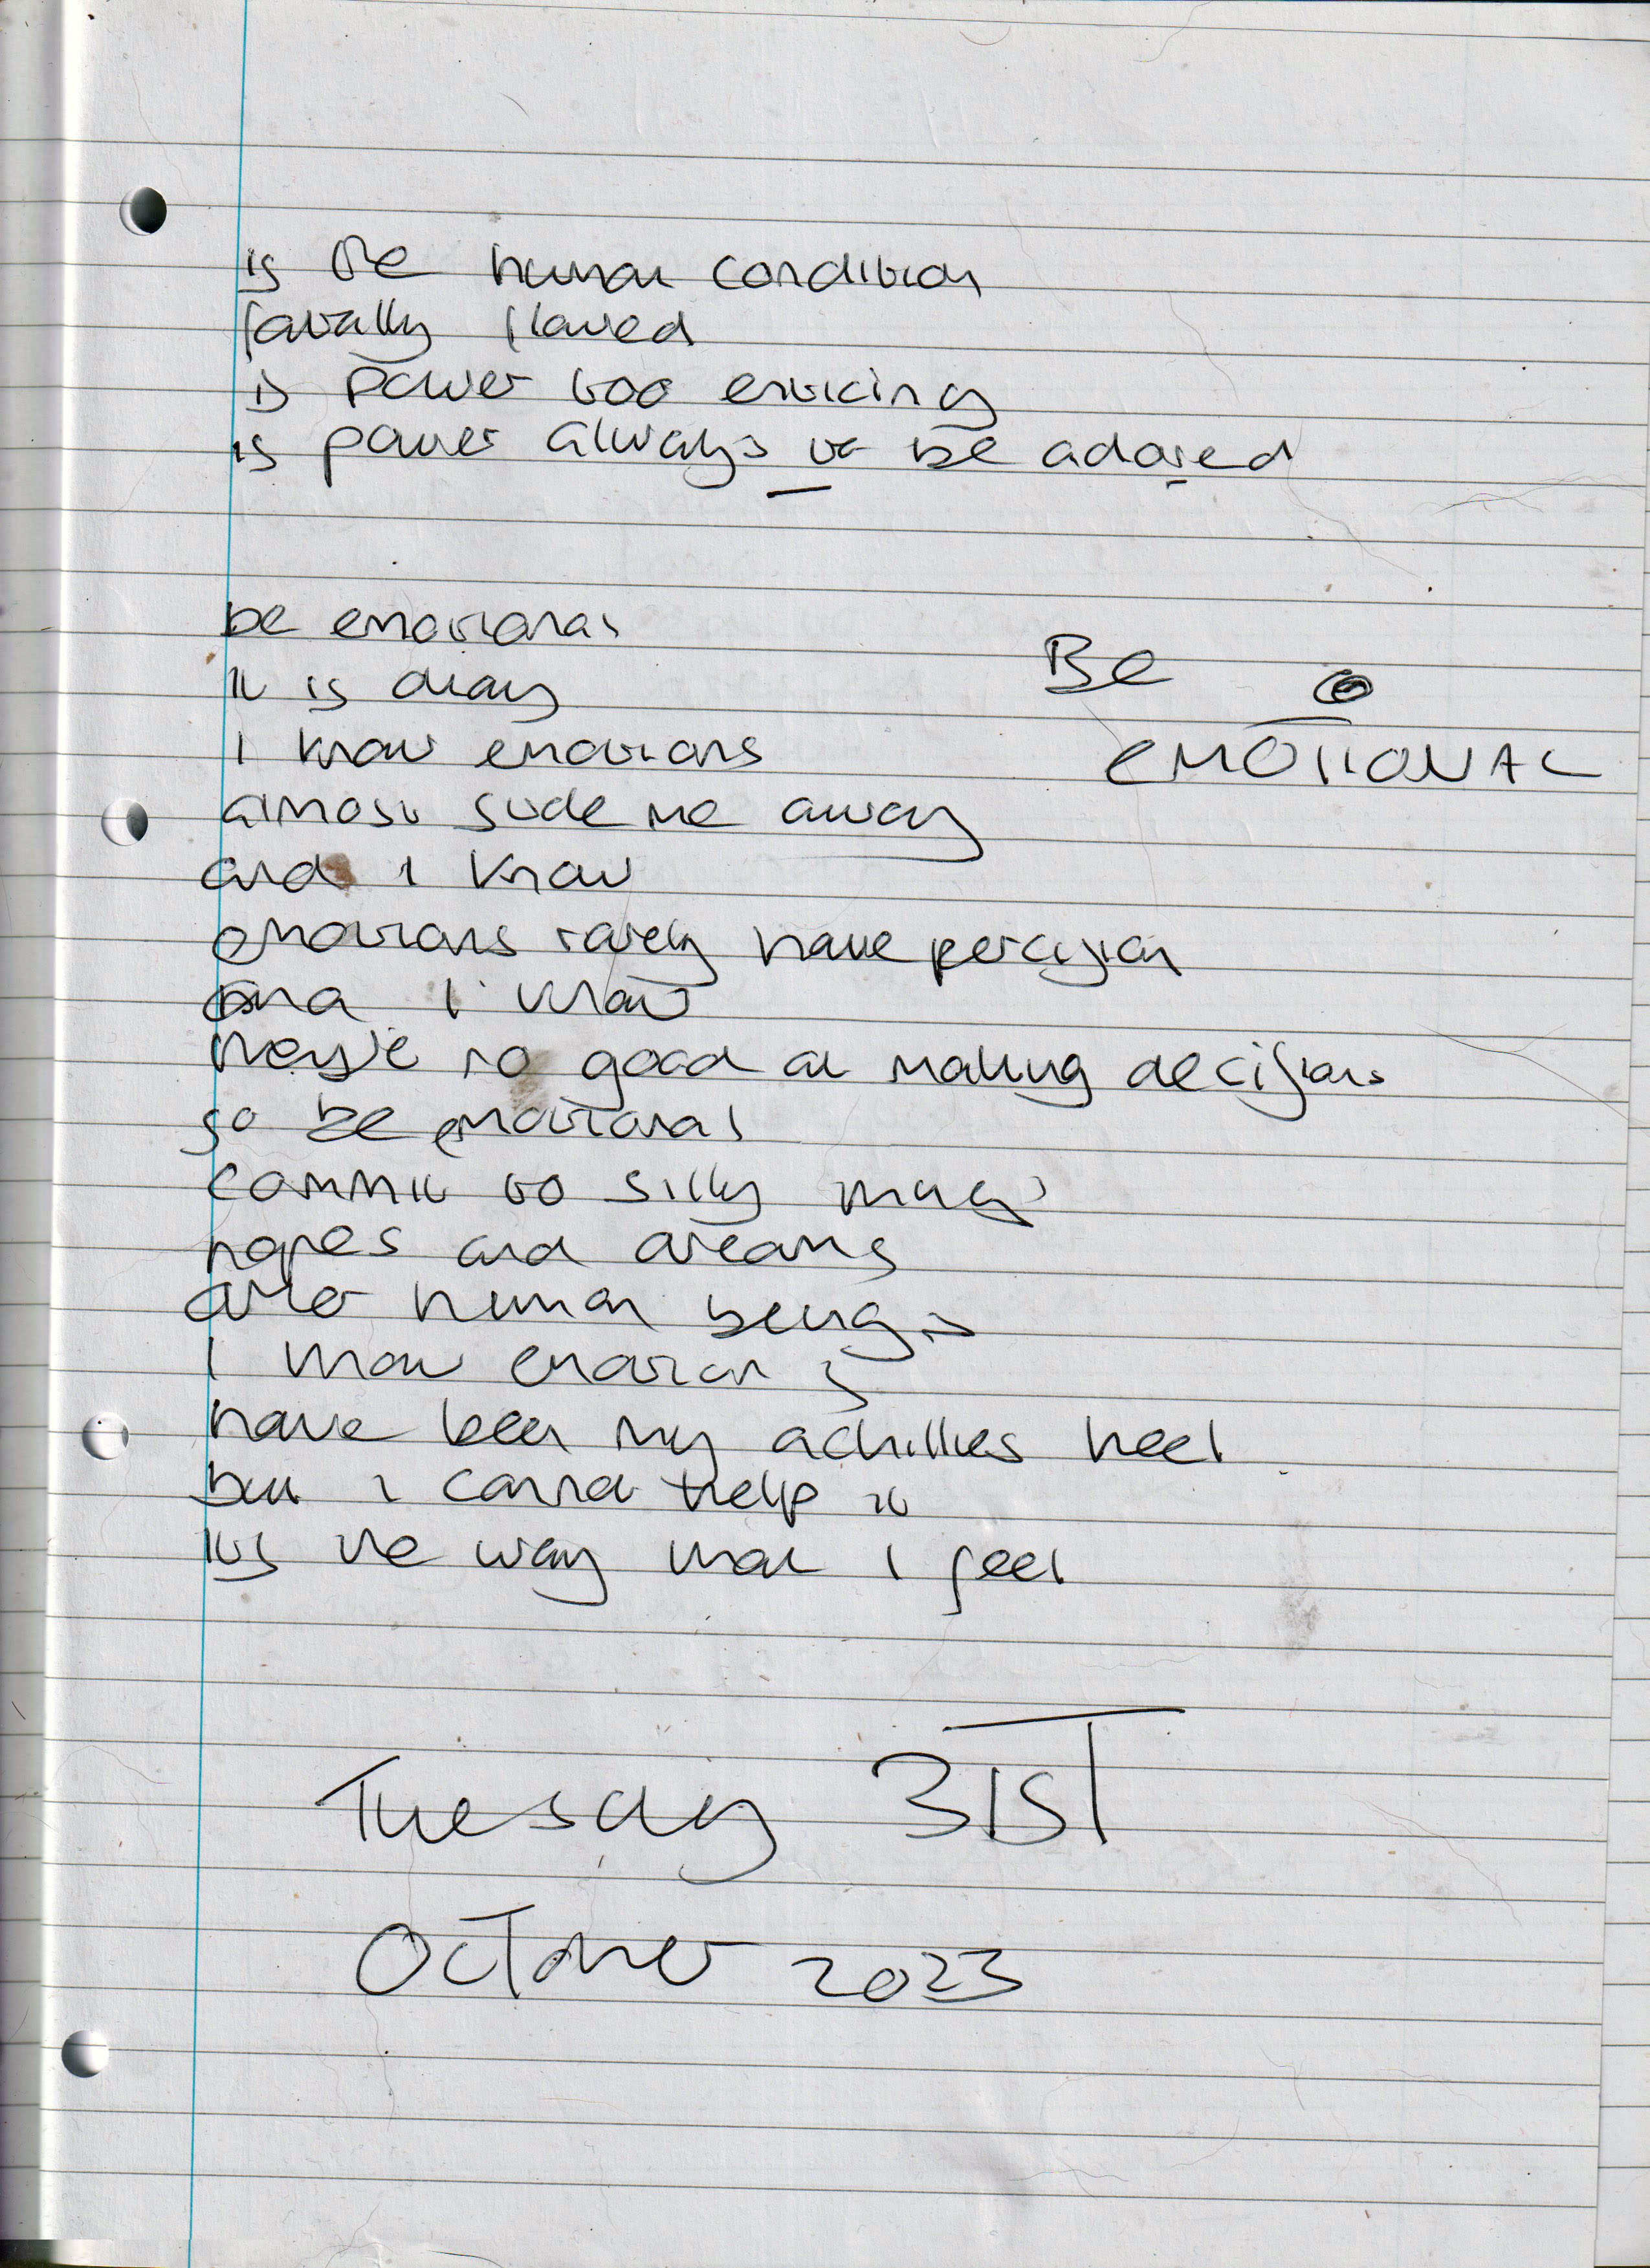 is the human condition
fatally flawed
is power too enticing
is power always to be adored
be emotional
it is okay
Be
EMOTIONAL
I know emotions
almost me away
and i know
emotions rarely have percision
and I know
they're no good at making decisions
so be emotional
commit to silly things
hopes and dreams
after human beings
I know emotions
have been my achillies heel
but i cannot help it
its the way that I feel
Tuesday 31ST
OCTOber 2023